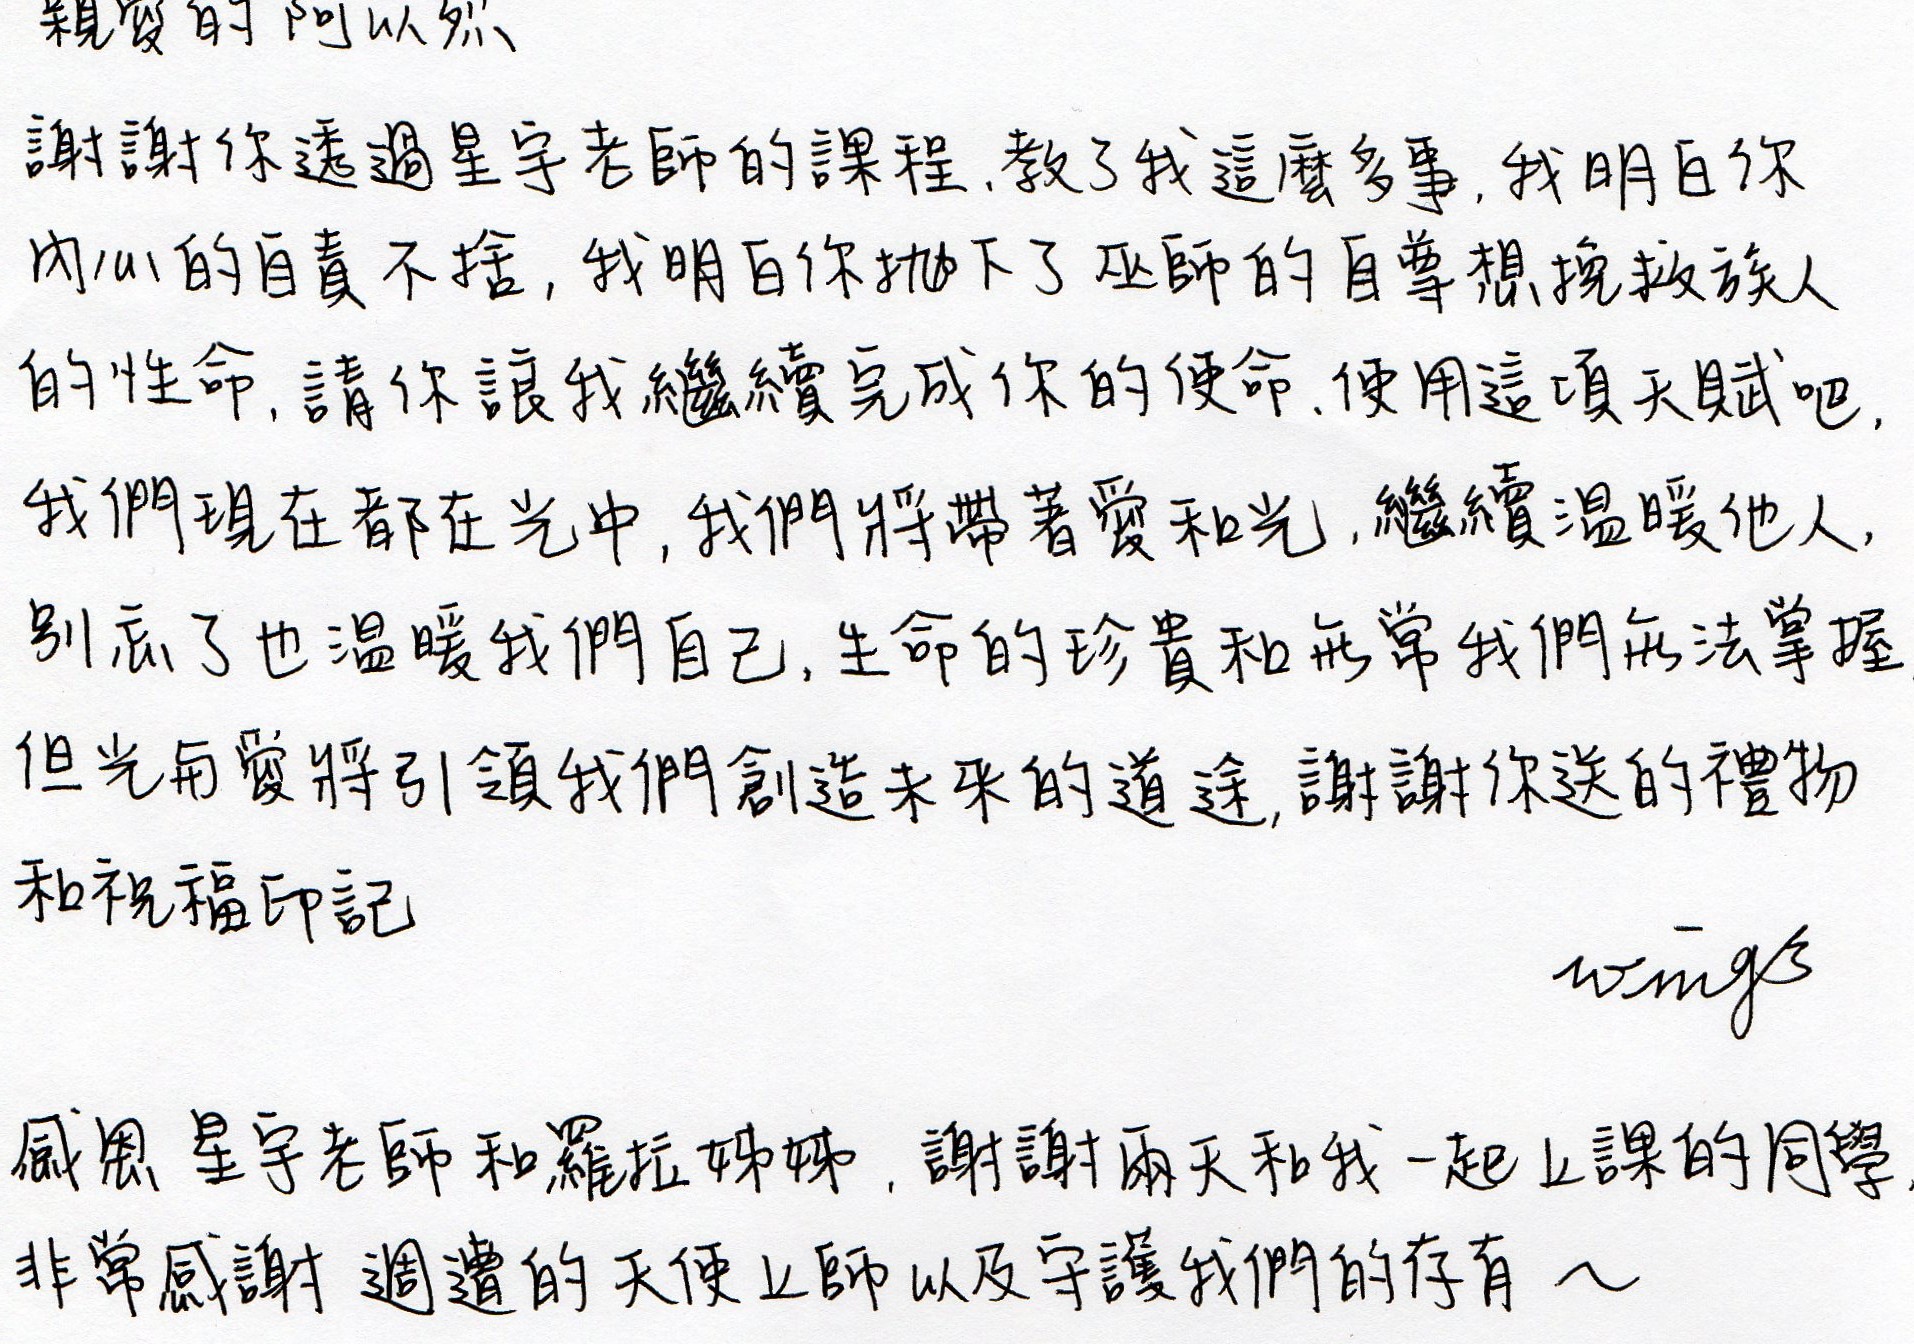 親愛的阿以然
謝謝你透過星宇老師的課程、教了我這麼多事，我明白你
內心的自責不捨，我明白你拋下了巫師的自尊想挽救族人
的性命，請你讓我繼續完成你的使命、使用這項天賦吧，
我們現在都在光中，我們將帶著愛和光，繼續溫暖他人，
別忘了也溫暖我們自己，生命的珍貴和無常我們無法掌握，
但光與愛將引領我們創造未來的道途，謝謝你送的禮物
和祝福印記
wings
感恩 星宇老師和羅拉姊姊，謝謝兩天和我一起上課的同學，
非常感謝 週遭的天使上師以及守護我們的存有～